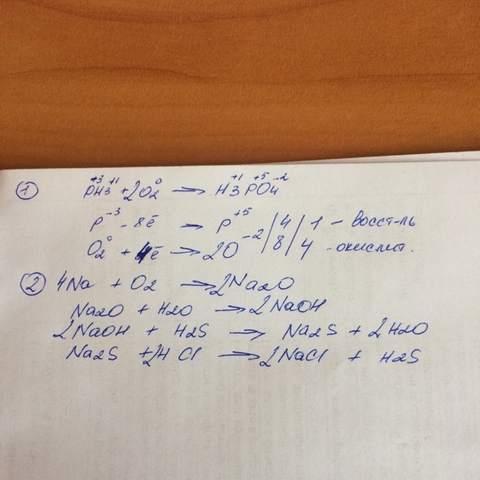 ① P⁺³H₃⁺¹ + 2O₂⁰ → H₃⁺¹P⁺⁵O₄⁻²
P⁻³ - 8ē → P⁺⁵ | 4 | 1 - восст-ль
O₂⁰ + 4ē → 2O⁻² | 8 | 4 - окислит.
② 4Na + O₂ → 2Na₂O
Na₂O + H₂O → 2NaOH
2NaOH + H₂S → Na₂S + 2H₂O
Na₂S + 2HCl → 2NaCl + H₂S